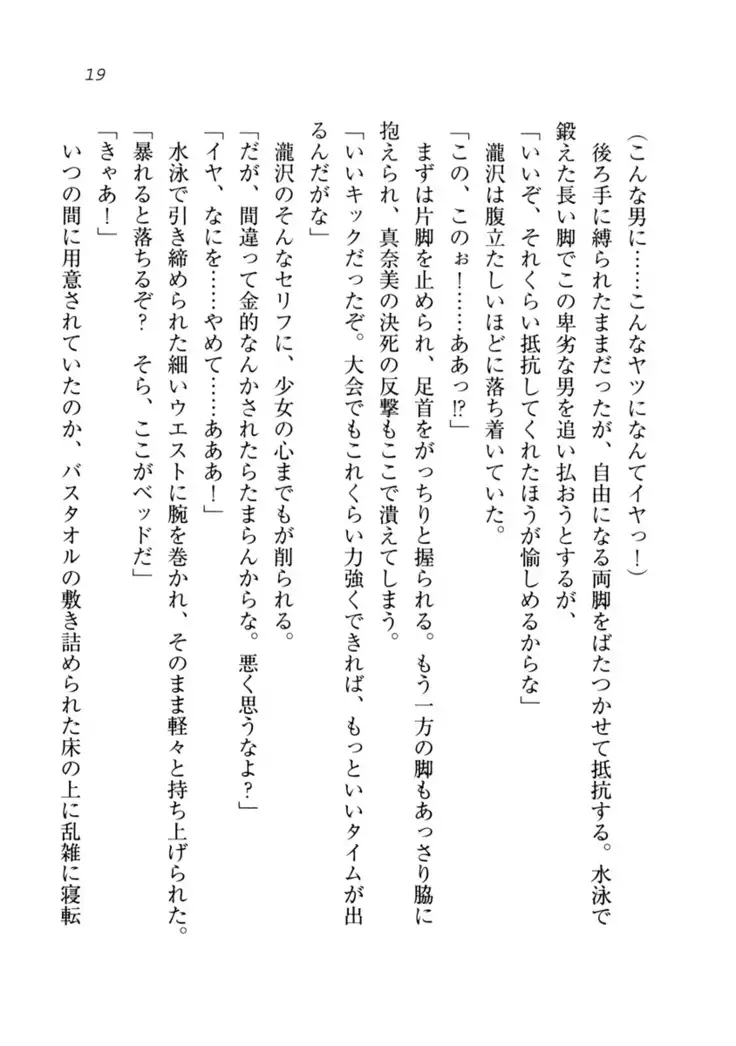 19
(こんな男に……こんなヤツになんてイヤっ！)
後ろ手に縛られたままだったが、自由になる両脚をばたつかせて抵抗する。水泳で
鍛えた長い脚でこの卑劣な男を追い払おうとするが、
「いいぞ、それくらい抵抗してくれたほうが愉しめるからな」
瀧沢は腹立たしいほどに落ち着いていた。
「この、このぉ！……ああっ!?」
まずは片脚を止められ、足首をがっちりと握られる。もう一方の脚もあっさり脇に
抱えられ、真奈美の決死の反撃もここで潰えてしまう。
「いいキックだったぞ。大会でもこれくらい力強くできれば、もっといいタイムが出
るんだがな」
瀧沢のそんなセリフに、少女の心までもが削られる。
「だが、間違って金的なんかされたらたまらんからな。悪く思うなよ？」
「イヤ、なにを……やめて……あああ！」
水泳で引き締められた細いウエストに腕を巻かれ、そのまま軽々と持ち上げられた。
「暴れると落ちるぞ？　そら、ここがベッドだ」
「きゃあ！」
いつの間に用意されていたのか、バスタオルの敷き詰められた床の上に乱雑に寝転